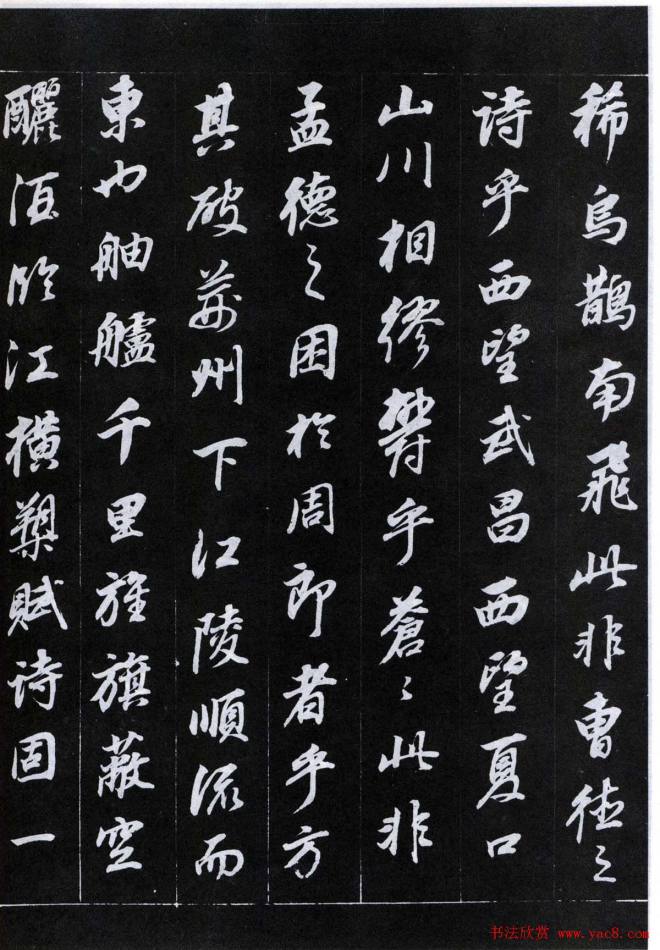 稀烏鵲南飛此非曹德之
詩乎西望武昌西望夏口
山川相繆鬱乎蒼〻此非
孟德之困於周郎者乎方
其破荊州下江陵順流而
東也舳艫千里旌旗蔽空
釃酒臨江橫槊賦詩固一
书法欣赏 www.yac8.com